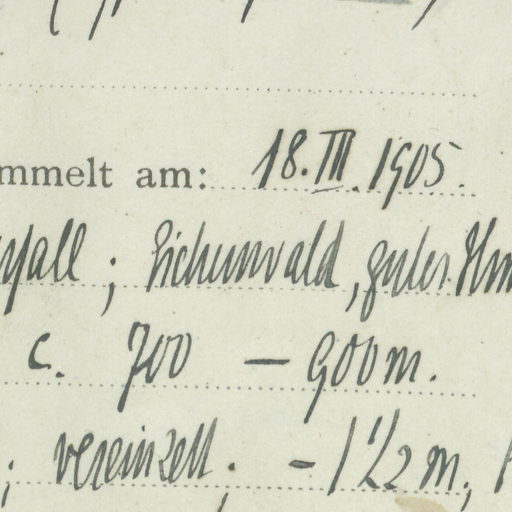 mmelt am: 18.III.1905.
fall; Eichenwald, guter Hum
c. 700 – 900 m.
; vereinzelt; – 1 1/2 m;